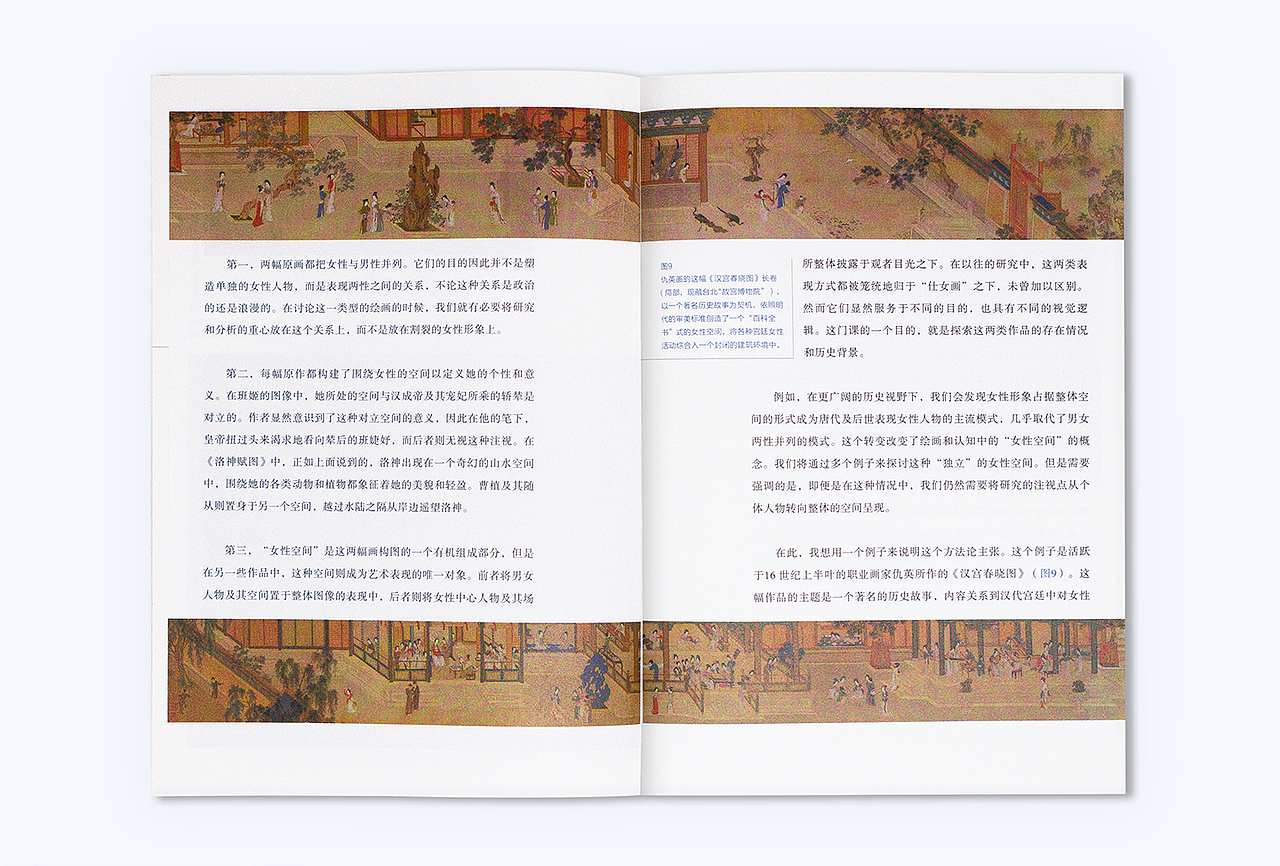 第一，两幅原画都把女性与男性并列。它们的目的因此并不是塑
造单独的女性人物，而是表现两性之间的关系，不论这种关系是政治
的还是浪漫的。在讨论这一类型的绘画的时候，我们就有必要将研究
和分析的重心放在这个关系上，而不是放在割裂的女性形象上。
第二，每幅原作都构建了围绕女性的空间以定义她的个性和意
义。在班姬的图像中，她所处的空间与汉成帝及其宠妃所乘的轿辇是
对立的。作者显然意识到了这种对立空间的意义，因此在他的笔下，
皇帝扭过头来渴求地看向辇后的班婕妤，而后者则无视这种注视。在
《洛神赋图》中，正如上面说到的，洛神出现在一个奇幻的山水空间
中，围绕她的各类动物和植物都象征着她的美貌和轻盈。曹植及其随
从则置身于另一个空间，越过水陆之隔从岸边遥望洛神。
第三，“女性空间”是这两幅画构图的一个有机组成部分，但是
在另一些作品中，这种空间则成为艺术表现的唯一对象。前者将男女
人物及其空间置于整体图像的表现中，后者则将女性中心人物及其场
图9
仇英画的这幅《汉宫春晓图》长卷
（局部，现藏台北“故宫博物院”），
以一个著名历史故事为契机，依照明
代的审美标准创造了一个“百科全
书”式的女性空间，将各种宫廷女性
活动综合入一个封闭的建筑环境中。
所整体披露于观者目光之下。在以往的研究中，这两类表
现方式都被笼统地归于“仕女画”之下，未曾加以区别。
然而它们显然服务于不同的目的，也具有不同的视觉逻
辑。这门课的一个目的，就是探索这两类作品的存在情况
和历史背景。
例如，在更广阔的历史视野下，我们会发现女性形象占据整体空
间的形式成为唐代及后世表现女性人物的主流模式，几乎取代了男女
两性并列的模式。这个转变改变了绘画和认知中的“女性空间”的概
念。我们将通过多个例子来探讨这种“独立”的女性空间。但是需要
强调的是，即便是在这种情况中，我们仍然需要将研究的注视点从个
体人物转向整体的空间呈现。
在此，我想用一个例子来说明这个方法论主张。这个例子是活跃
于16世纪上半叶的职业画家仇英所作的《汉宫春晓图》（图9）。这
幅作品的主题是一个著名的历史故事，内容关系到汉代宫廷中对女性